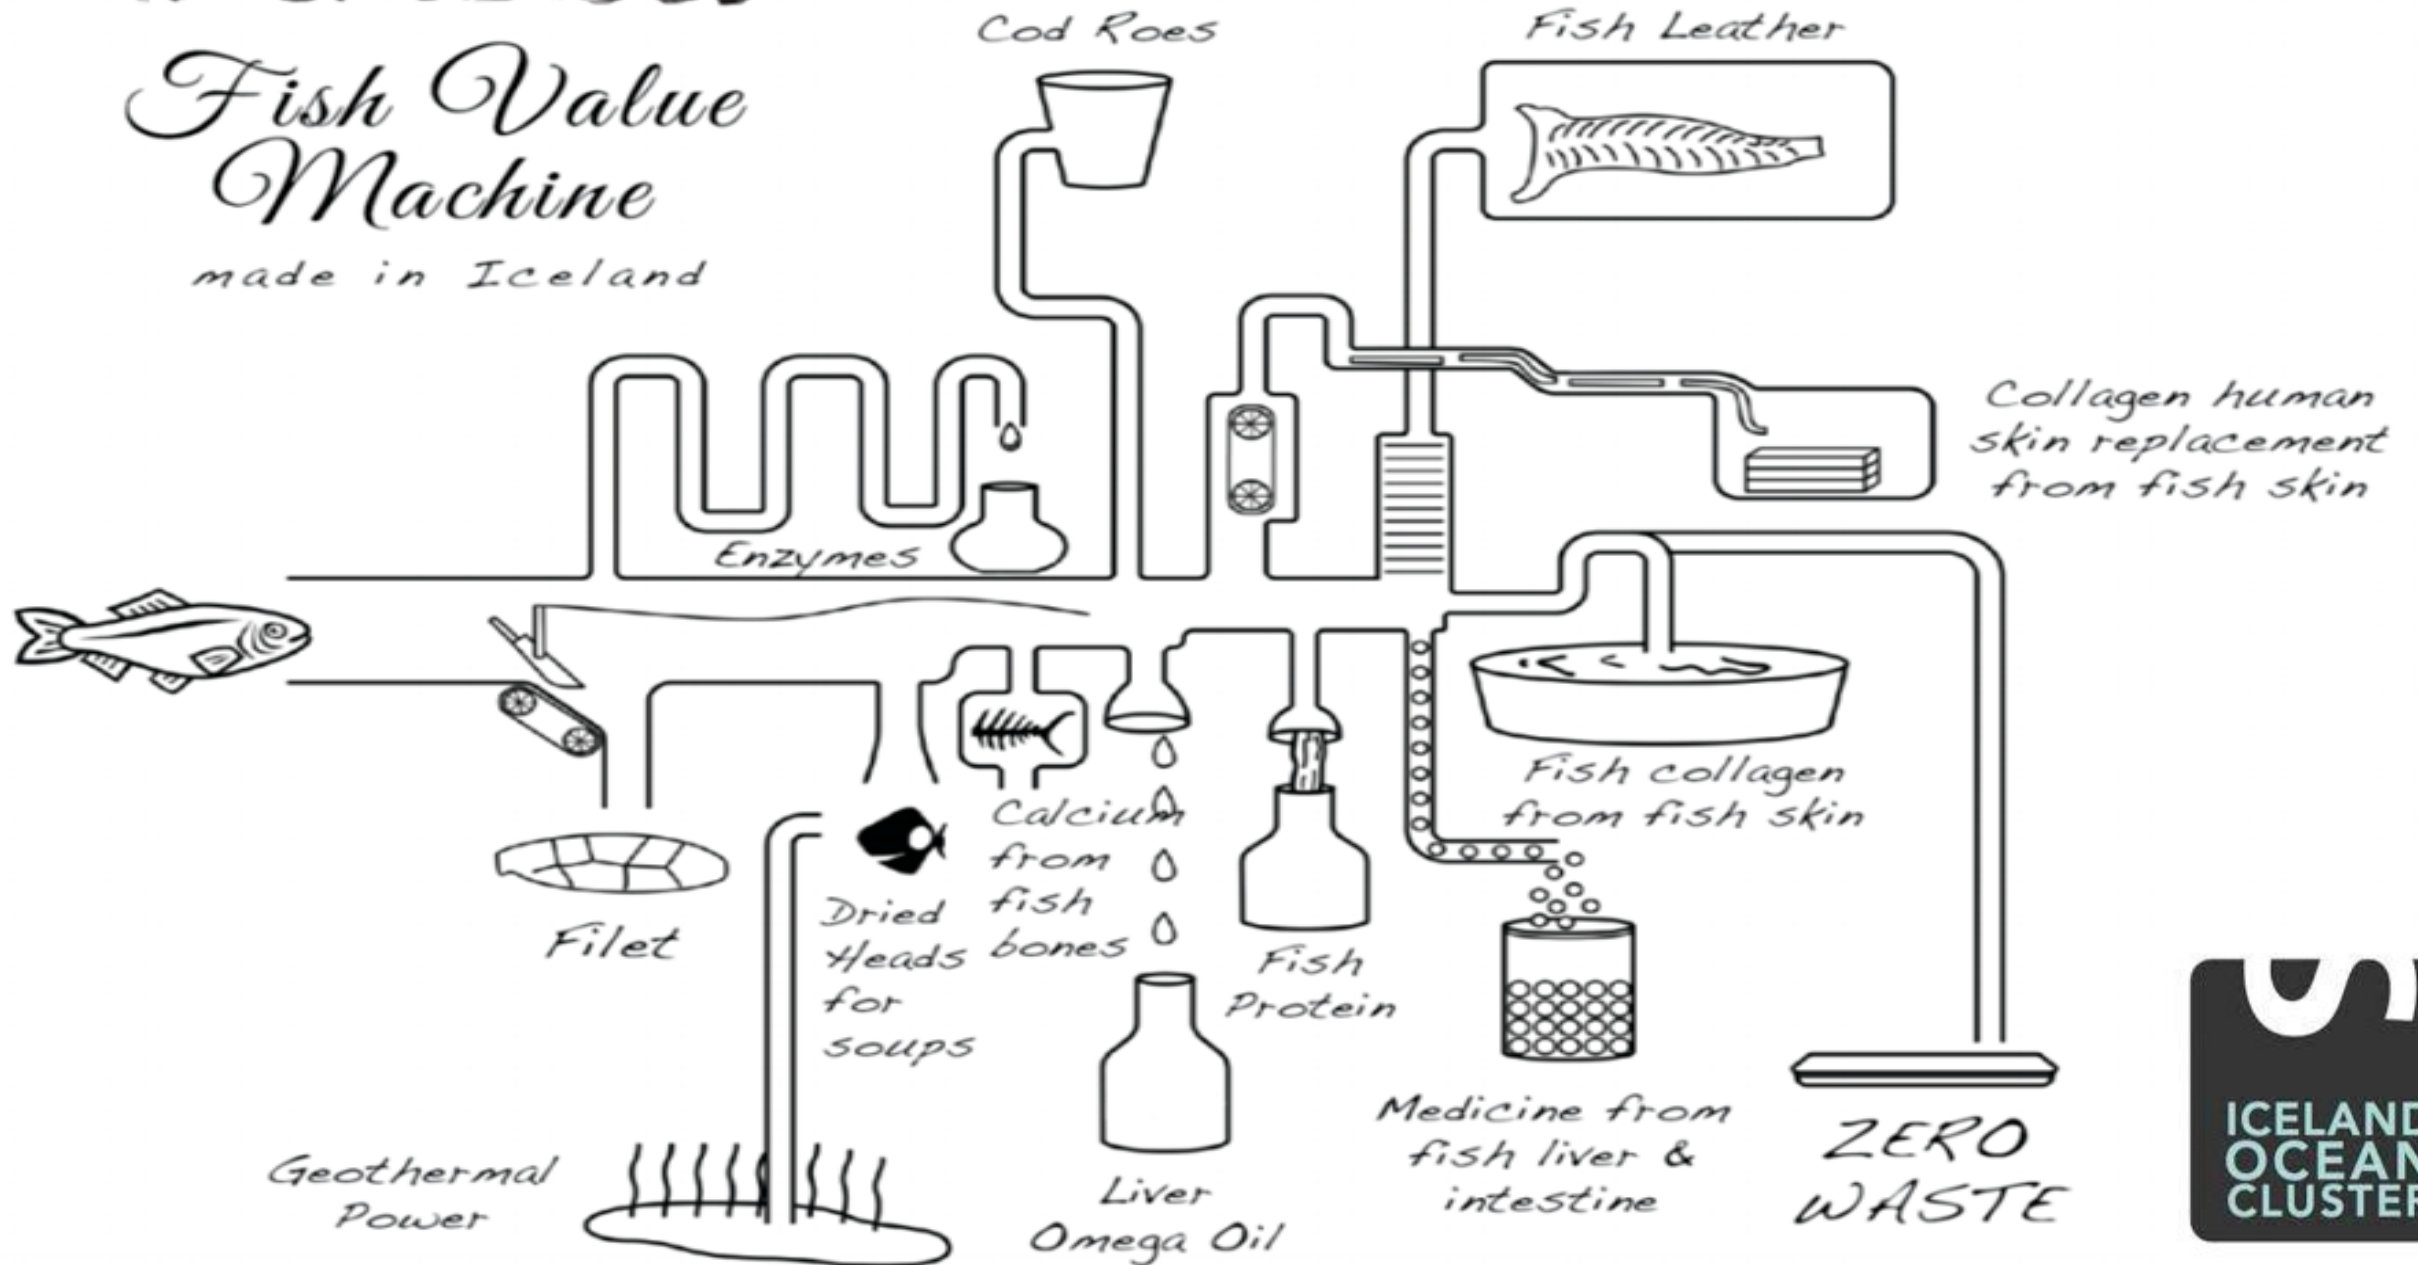 Fish Value
Machine
made in Iceland
Cod Roes
Fish Leather
Collagen human
skin replacement
from fish skin
Enzymes
Fish collagen
from fish skin
Filet
Dried
Heads
for
soups
Calcium
from
fish
bones
Fish
Protein
Liver
Omega Oil
Medicine from
fish liver &
intestine
ZERO
WASTE
Geothermal
Power
ICELAND
OCEAN
CLUSTER